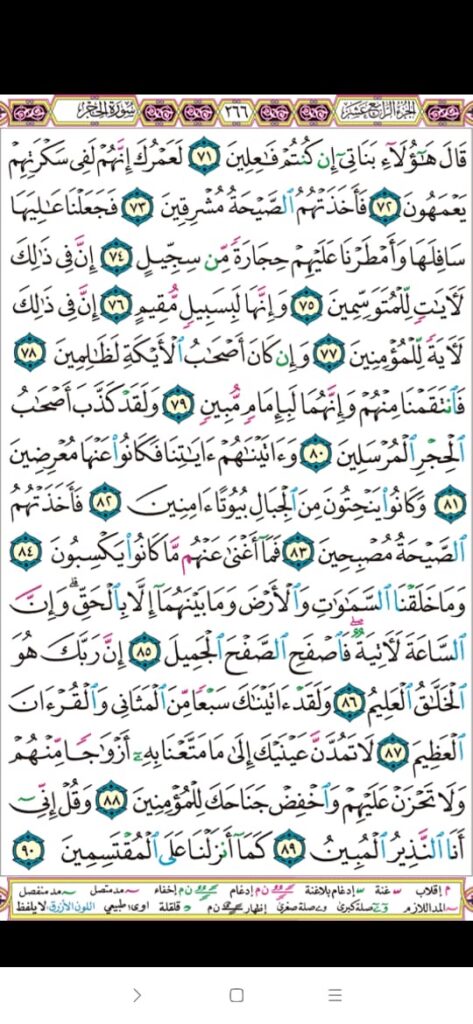 الجزء الرابع عشر ٢٦٦ سورة الحجر
قَالَ هَٰٓؤُلَآءِ بَنَاتِىٓ إِن كُنتُمْ فَٰعِلِينَ ٧١ لَعَمْرُكَ إِنَّهُمْ لَفِى سَكْرَتِهِمْ
يَعْمَهُونَ ٧٢ فَأَخَذَتْهُمُ ٱلصَّيْحَةُ مُشْرِقِينَ ٧٣ فَجَعَلْنَا عَٰلِيَهَا
سَافِلَهَا وَأَمْطَرْنَا عَلَيْهِمْ حِجَارَةً مِّن سِجِّيلٍ ٧٤ إِنَّ فِى ذَٰلِكَ
لَءَايَٰتٍ لِّلْمُتَوَسِّمِينَ ٧٥ وَإِنَّهَا لَبِسَبِيلٍ مُّقِيمٍ ٧٦ إِنَّ فِى ذَٰلِكَ
لَءَايَةً لِّلْمُؤْمِنِينَ ٧٧ وَإِن كَانَ أَصْحَٰبُ ٱلْأَيْكَةِ لَظَٰلِمِينَ ٧٨
فَٱنتَقَمْنَا مِنْهُمْ وَإِنَّهُمَا لَبِإِمَامٍ مُّبِينٍ ٧٩ وَلَقَدْ كَذَّبَ أَصْحَٰبُ
ٱلْحِجْرِ ٱلْمُرْسَلِينَ ٨٠ وَءَاتَيْنَٰهُمْ ءَايَٰتِنَا فَكَانُوا۟ عَنْهَا مُعْرِضِينَ
٨١ وَكَانُوا۟ يَنْحِتُونَ مِنَ ٱلْجِبَالِ بُيُوتًا ءَامِنِينَ ٨٢ فَأَخَذَتْهُمُ
ٱلصَّيْحَةُ مُصْبِحِينَ ٨٣ فَمَآ أَغْنَىٰ عَنْهُم مَّا كَانُوا۟ يَكْسِبُونَ ٨٤
وَمَا خَلَقْنَا ٱلسَّمَٰوَٰتِ وَٱلْأَرْضَ وَمَا بَيْنَهُمَآ إِلَّا بِٱلْحَقِّ ۗ وَإِنَّ
ٱلسَّاعَةَ لَءَاتِيَةٌ ۖ فَٱصْفَحِ ٱلصَّفْحَ ٱلْجَمِيلَ ٨٥ إِنَّ رَبَّكَ هُوَ
ٱلْخَلَّٰقُ ٱلْعَلِيمُ ٨٦ وَلَقَدْ ءَاتَيْنَٰكَ سَبْعًا مِّنَ ٱلْمَثَانِى وَٱلْقُرْءَانَ
ٱلْعَظِيمَ ٨٧ لَا تَمُدَّنَّ عَيْنَيْكَ إِلَىٰ مَا مَتَّعْنَا بِهِۦٓ أَزْوَٰجًا مِّنْهُمْ
وَلَا تَحْزَنْ عَلَيْهِمْ وَٱخْفِضْ جَنَاحَكَ لِلْمُؤْمِنِينَ ٨٨ وَقُلْ إِنِّىٓ
أَنَا ٱلنَّذِيرُ ٱلْمُبِينُ ٨٩ كَمَآ أَنزَلْنَا عَلَى ٱلْمُقْتَسِمِينَ ٩٠
م إقلاب غنة إدغام بلاغنة ن م إدغام ن م إخفاء مد متصل مد منفصل
المد اللازم صلة كبرى صلة صغرى إظهار ن م قلقلة اوى، طبيعي اللون الأزرق، لا يلفظ